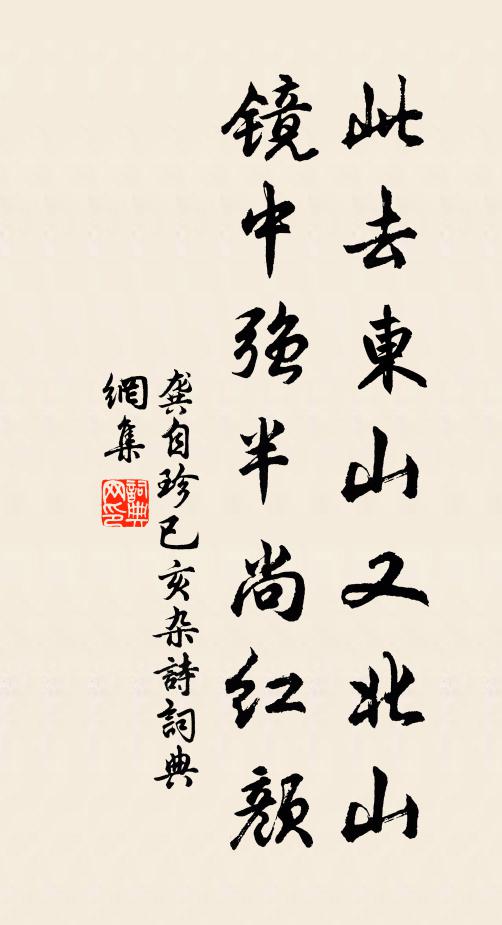 此去東山又北山
镜中强半尚红颜
龚自珍已亥杂詩詞典
網集
詞典网印